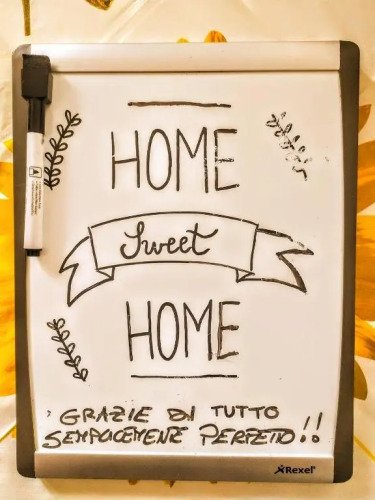 HOME
Sweet
HOME
GRAZIE DI TUTTO
SEMPLICEMENTE PERFETTO!!
Rexel